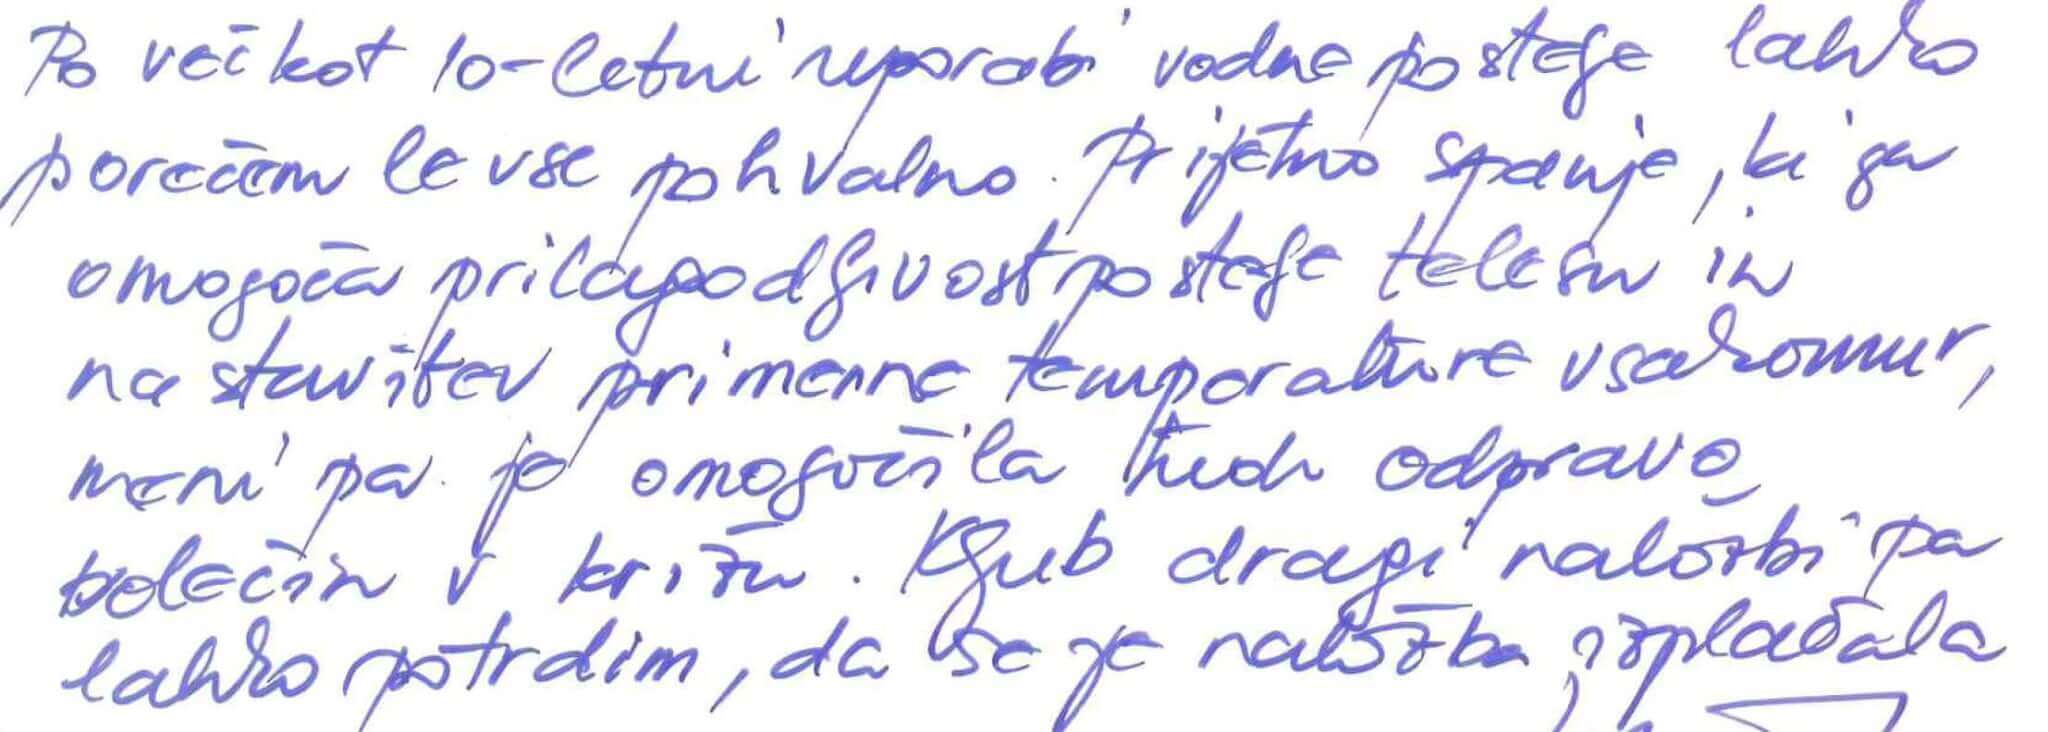 Po večkot 10-letni uporabi vodne postelje lahko
porečem le vse pohvalno. Prijetno spanje, ki ga
omogoča prilagodljivost postelje telesu in
nastavitev primerne temperature vsakomur,
meni pa je omogočila tudi odpravo
bolečin v križu. Kljub dragi naložbi pa
lahko potrdim, da se je naložba izplačala